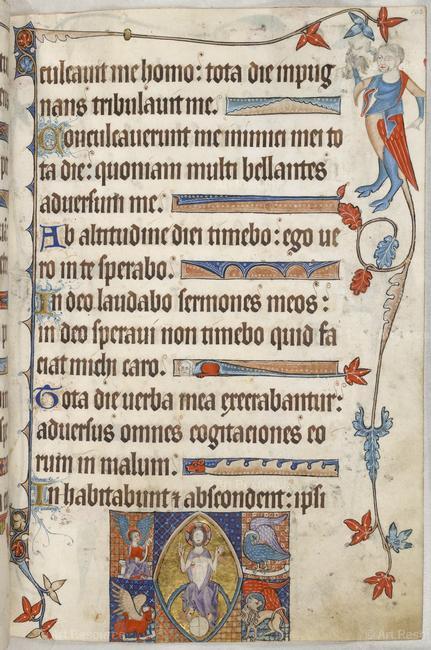 culcauit me homo: tota die inpug
nans tribulauit me.
Conculcauerunt me inimici mei to
ta die: quoniam multi bellantes
aduersum me.
Ab altitudine diei timebo: ego ue
ro in te sperabo.
In deo laudabo sermones meos:
in deo speraui non timebo quid fa
ciat michi caro.
Tota die uerba mea execrabantur:
aduersus omnes cogitaciones eo
rum in malum.
In habitabunt ⁊ abscondent: ipsi